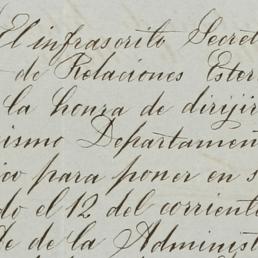 El infrascrito Secret
de Relaciones Ester
la honra de dirijir
ismo Departamen
ico para poner en s
do el 12 del corriente
de de la Administ